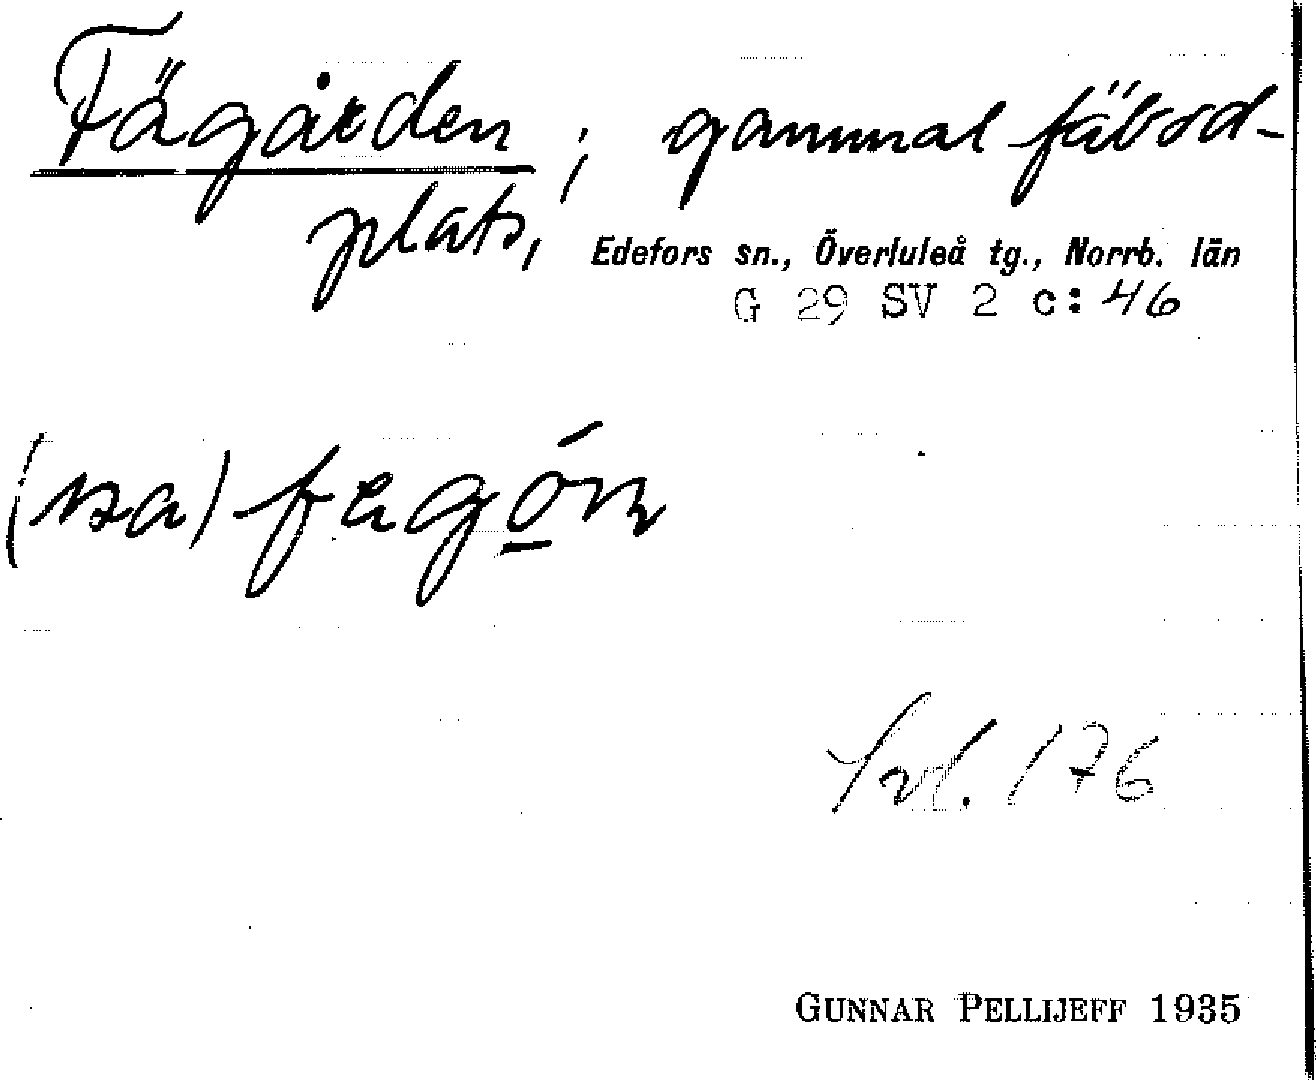 Fägården, gammal fäbod-
plats,
Edefors sn., Överluleå tg., Norrb. län
G 29 SV 2 c: 46
(na) fegón
176
GUNNAR PELLIJEFF 1935